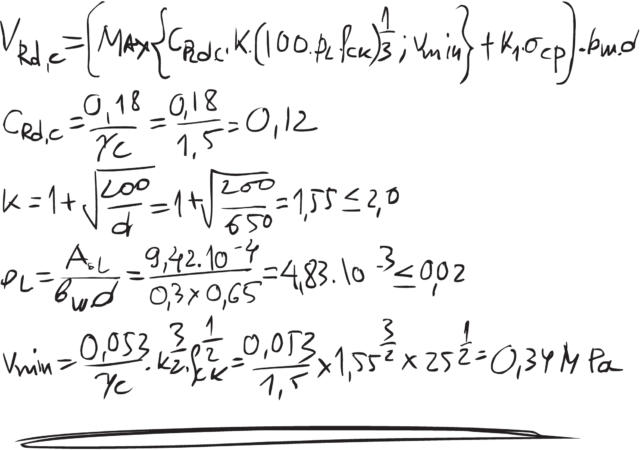 V_Rd,c = (MAX{C_Rdc·K·(100·ρ_L·f_ck)^1/3; V_min} + K_1·σ_cp)·b_w·d
C_Rd,c = 0,18/γ_c = 0,18/1,5 = 0,12
K = 1 + √(200/d) = 1 + √(200/650) = 1,55 ≤ 2,0
ρ_L = A_sL/(b_w d) = 9,42·10^-4/(0,3 × 0,65) = 4,83·10^-3 ≤ 0,02
V_min = 0,053/γ_c · K^3/2 · f_ck^1/2 = 0,053/1,5 × 1,55^3/2 × 25^1/2 = 0,34 MPa